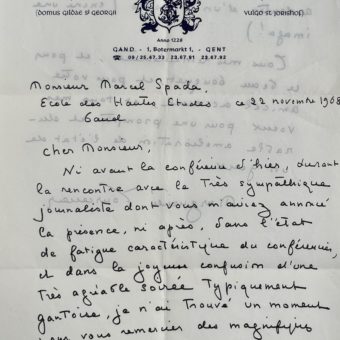 (DOMUS GILDAE ST GEORGII
VULGO ST JORISHOF)
Anno 1228
GAND - 1, Botermarkt 1, - GENT
☎ 09/25.47.33 23.67.91 23.67.92
Monsieur Marcel Spada,
Ecole des Hautes Etudes ce 22 novembre 1968
Gand
Cher Monsieur,
Ni avant la conférence d'hier, durant
la rencontre avec la très sympathique
journaliste dont vous m'aviez annoncé
la présence, ni après, dans l'état
de fatigue caractéristique du conférencier,
et dans la joyeuse confusion d'une
très agréable soirée typiquement
gantoise, je n'ai trouvé un moment
pour vous remercier des magnifiques